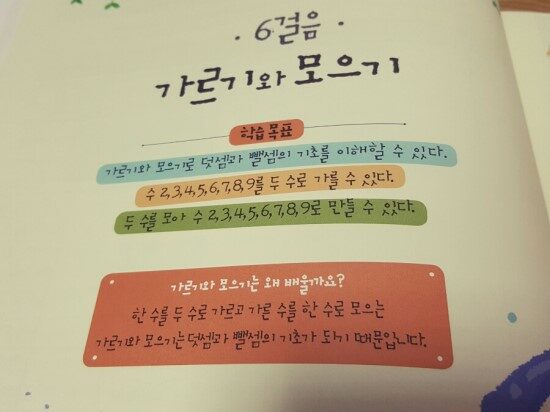 · 6걸음 ·
가르기와 모으기
학습 목표
가르기와 모으기로 덧셈과 뺄셈의 기초를 이해할 수 있다.
수 2,3,4,5,6,7,8,9를 두 수로 가를 수 있다.
두 수를 모아 수 2,3,4,5,6,7,8,9로 만들 수 있다.
가르기와 모으기는 왜 배울까요?
한 수를 두 수로 가르고 가른 수를 한 수로 모으는
가르기와 모으기는 덧셈과 뺄셈의 기초가 되기 때문입니다.